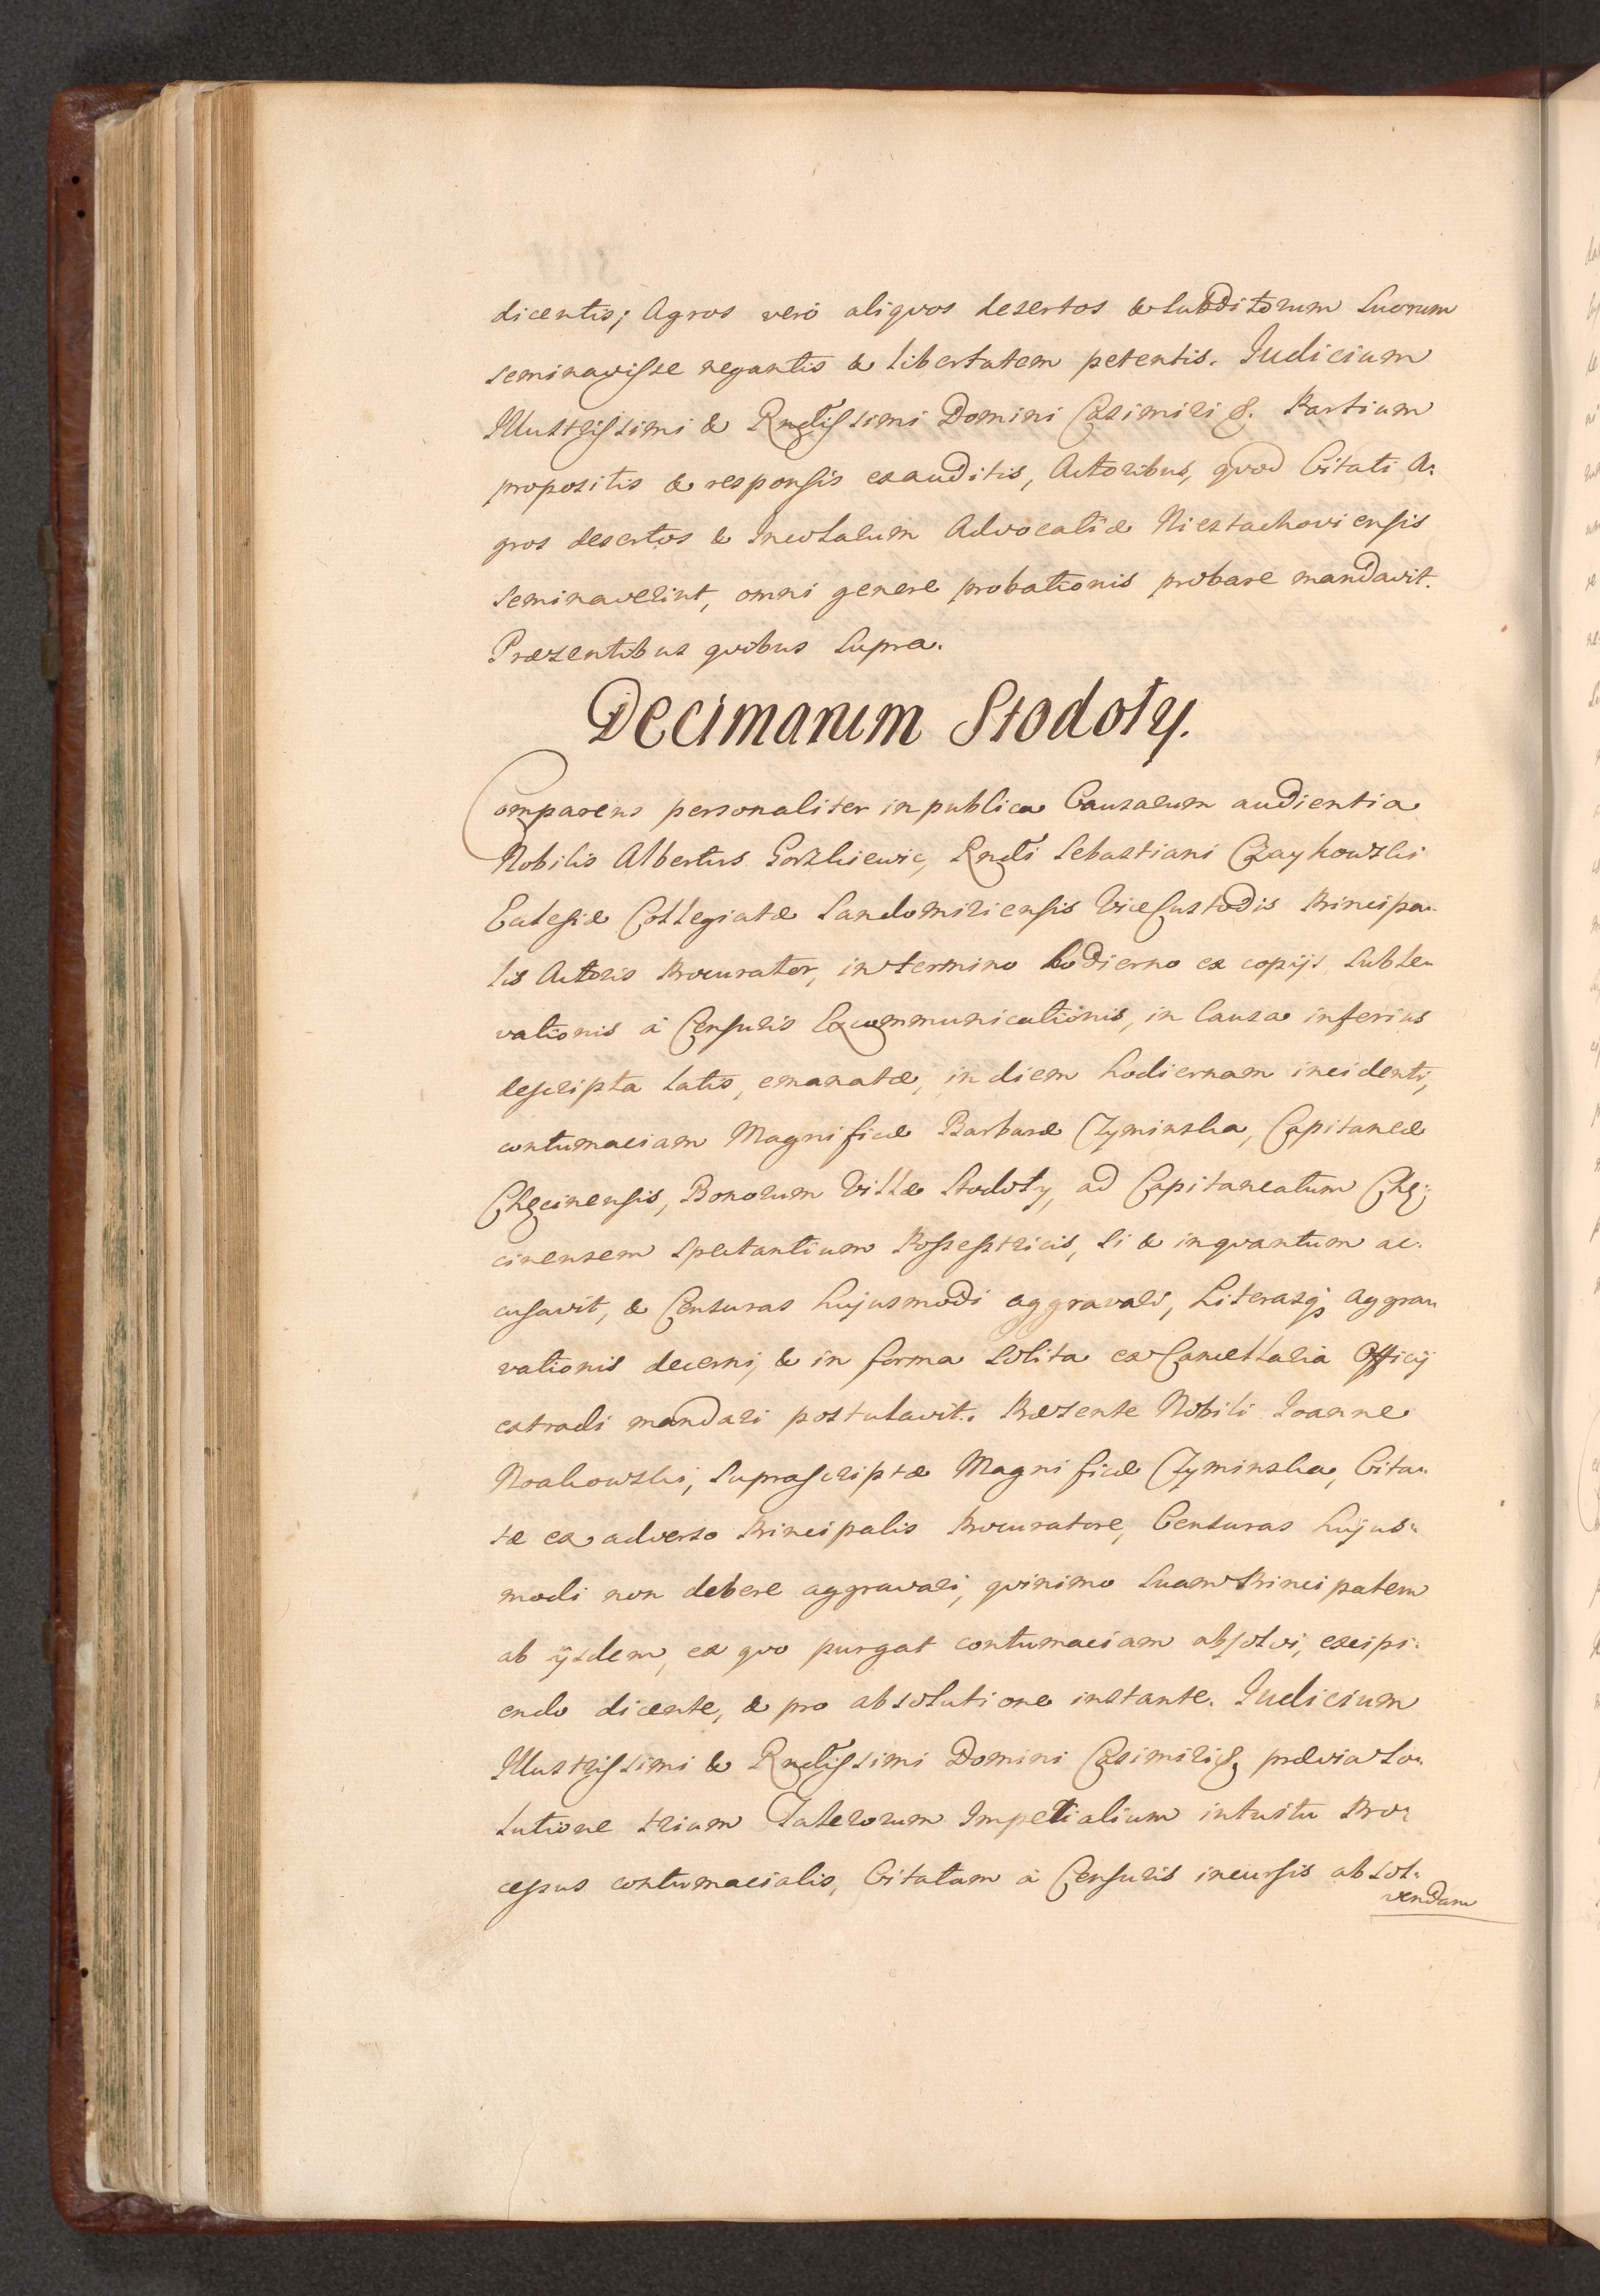 dicentis; Agros verò aliqvos desertos & Subditorum Suorum
seminavisse negantis & libertatem petentis. Iudicium
Illustrissimi & Rndissimi Domini Casimiri &. Partium
propositis & responsis exauditis, Actoribus, qvod Citati A:
gros desertos & Incolarum Advocatiæ Niestachoviensis
seminaverint, omni genere probationis probare mandavit.
Præsentibus qvibus Supra.
Decimarum Stodoły.
Comparens personaliter in publica Causarum audientia
Nobilis Albertus Gorzkiewic, Rndi Sebastiani Czaykowski
Eclesiæ Collegiatæ Sandomiriensis ViceCustodis Principa-
lis Actoris Procurator, in termino hodierno ex copijs Suble-
vationis à Censuris Excommunicationis, in Causa inferius
descripta latis, emanatæ, in diem hodiernam incidenti,
contumaciam Magnificæ Barbaræ Czyminska, Capitaneæ
Chęcinensis, Bonorum Villæ Stodoły, ad Capitaneatum Chę:
cinensem Spectantium Possestricis, Si & inqvantum ac:
cusavit, & Censuras hujusmodi aggravari, Literasq; Aggra-
vationis decerni, & in forma Solita ex Cancellaria Officij
extradi mandari postulavit. Præsente Nobili Ioanne
Noakowski, Suprascriptæ Magnificæ Czyminska, Cita-
tæ ex adverso Principalis Procuratore, Censuras hujus-
modi non debere aggravari, qvinimo Suam Principalem
ab ijsdem, ex qvo purgat contumaciam absolvi, excipi:
endo dicente, & pro absolutione instante. Iudicium
Illustrissimi & Rndissimi Domini Casimiri &, prævia So-
lutione trium Talerorum Imperialium intuitu Pro:
cessus contumacialis, Citatam à Censuris incursis absol-
vendam